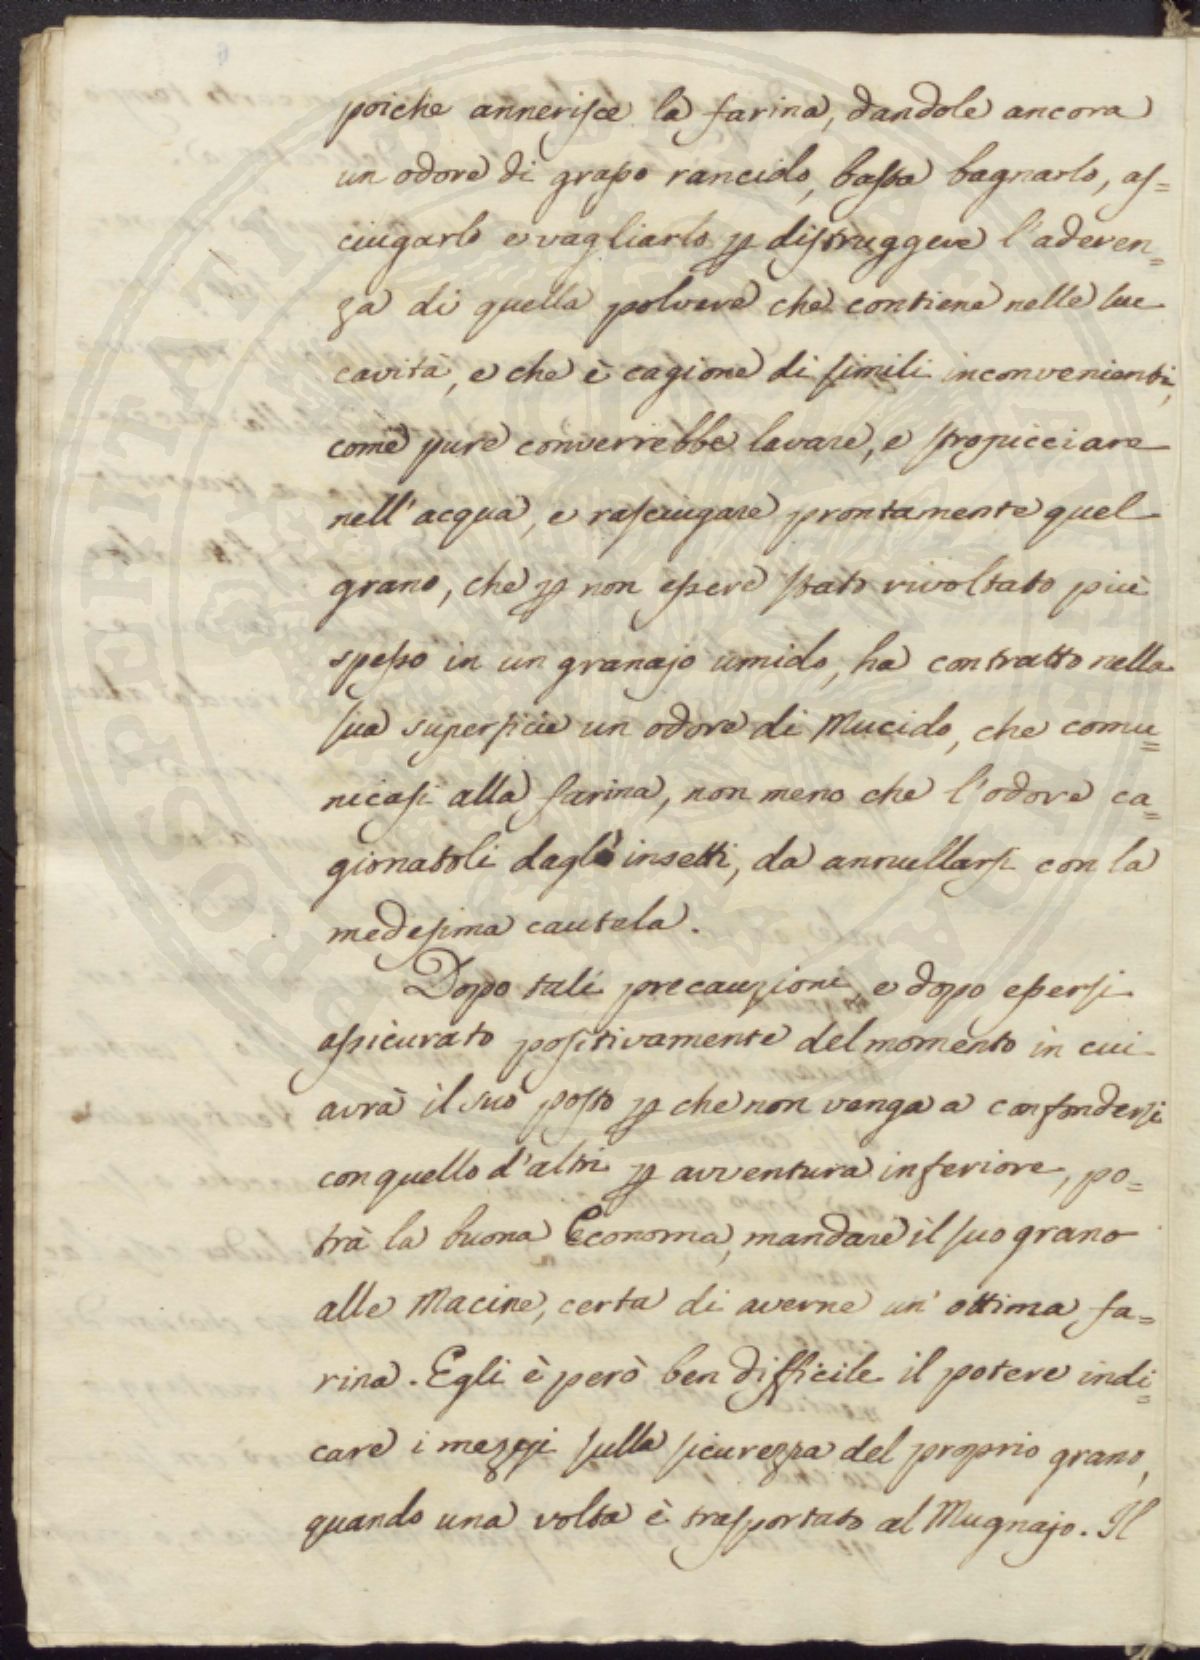 poiche annerisce la farina, dandole ancora
un odore di grasso rancido, basta bagnarlo, as=
ciugarlo e vagliarlo p distruggere l'aderen=
za di quella polvere che contiene nelle sue
cavità, e che è cagione di simili inconvenienti,
come pure converrebbe lavare, e stropicciare
nell'acqua, e rasciugare prontamente quel
grano, che p non essere stato rivoltato più
spesso in un granajo umido, ha contratto nella
sua superficie un odore di Mucido, che comu=
nicasi alla farina, non meno che l'odore ca=
gionatoli dagl'insetti, da annullarsi con la
medesima cautela.
Dopo tali precauzioni, e dopo essersi
assicurato positivamente del momento in cui
avrà il suo posto p che non venga a confondersi
con quello d'altri p avventura inferiore, po=
trà la buona Economa, mandare il suo grano
alle Macine, certa di averne un' ottima fa=
rina. Egli è però ben difficile il potere indi=
care i mezzi sulla sicurezza del proprio grano,
quando una volta è trasportato al Mugnajo. Il
PROSPERITATI PUBLICAE AUGENDAE